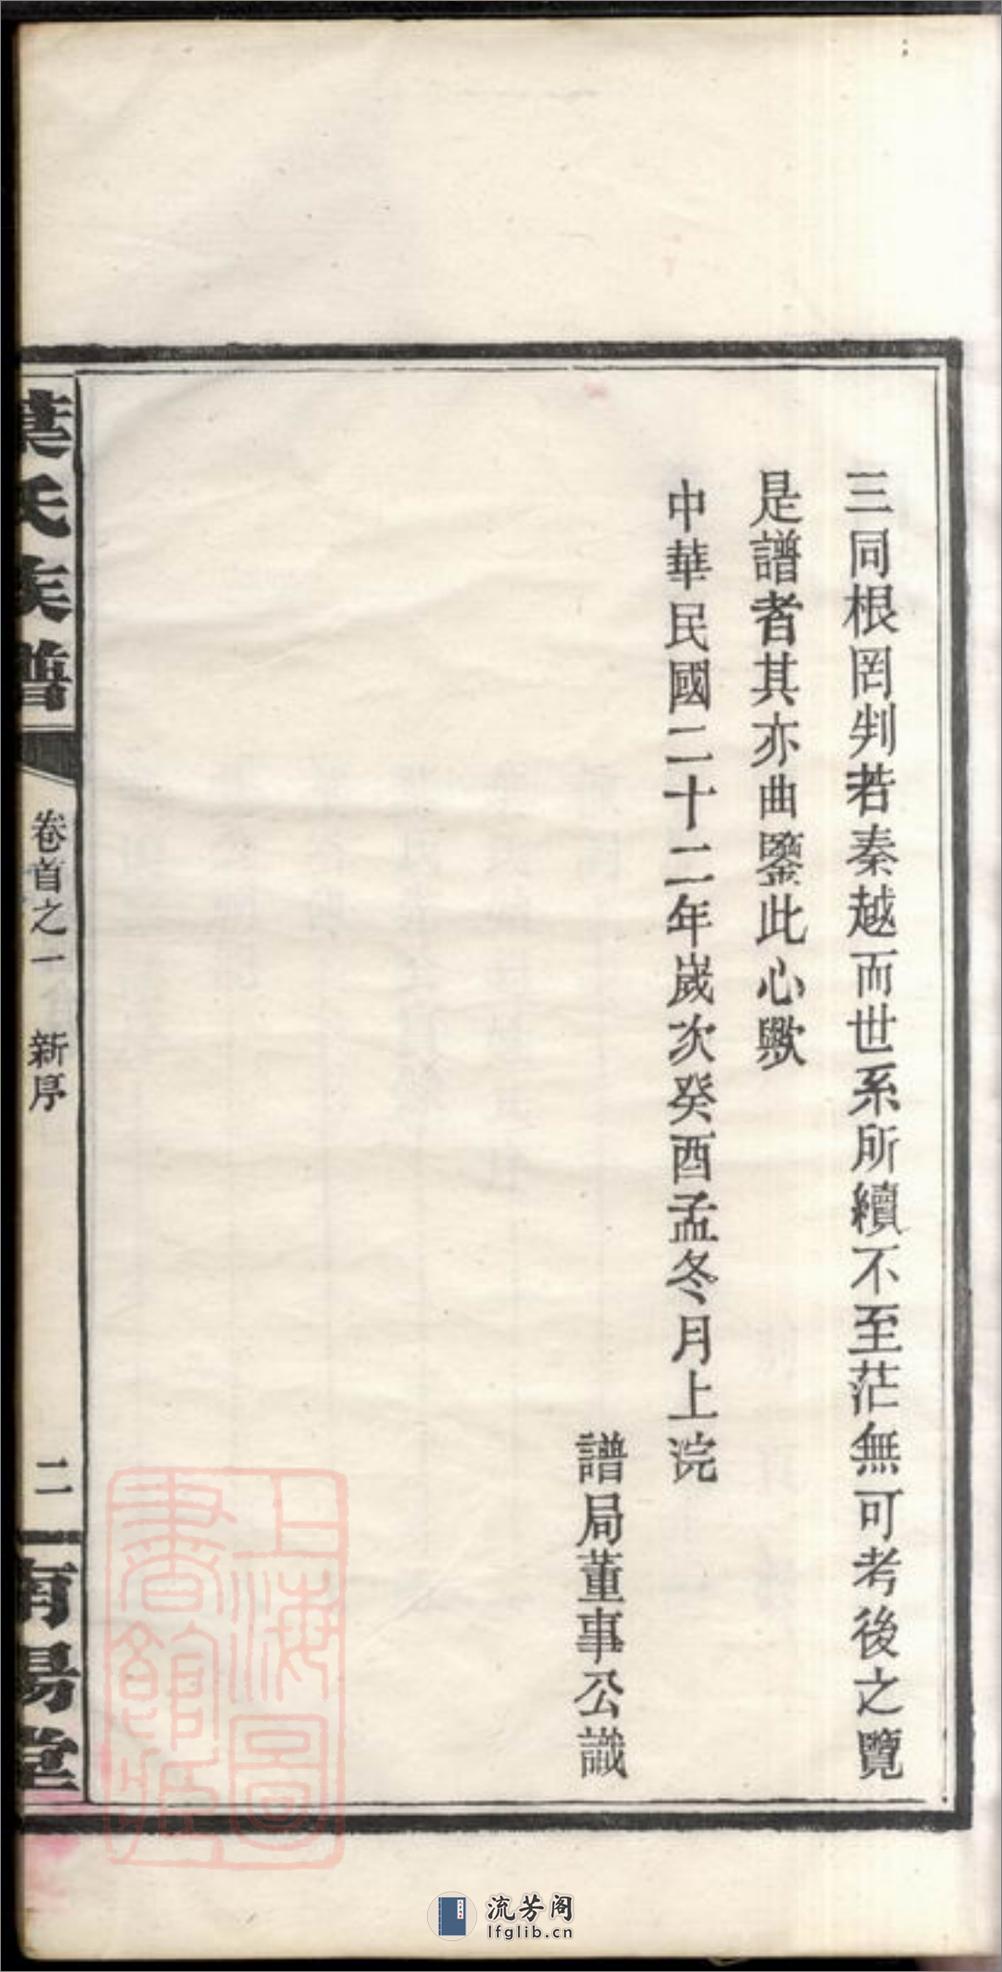 三同根罔判若秦越而世系所續不至茫無可考後之覽
是譜者其亦曲鑒此心歟
中華民國二十二年嵗次癸酉孟冬月上浣
譜局董事公識
葉氏族譜
卷首之一 新序
二
南陽堂
上海圖
書館藏
流芳阁
lfglib.cn